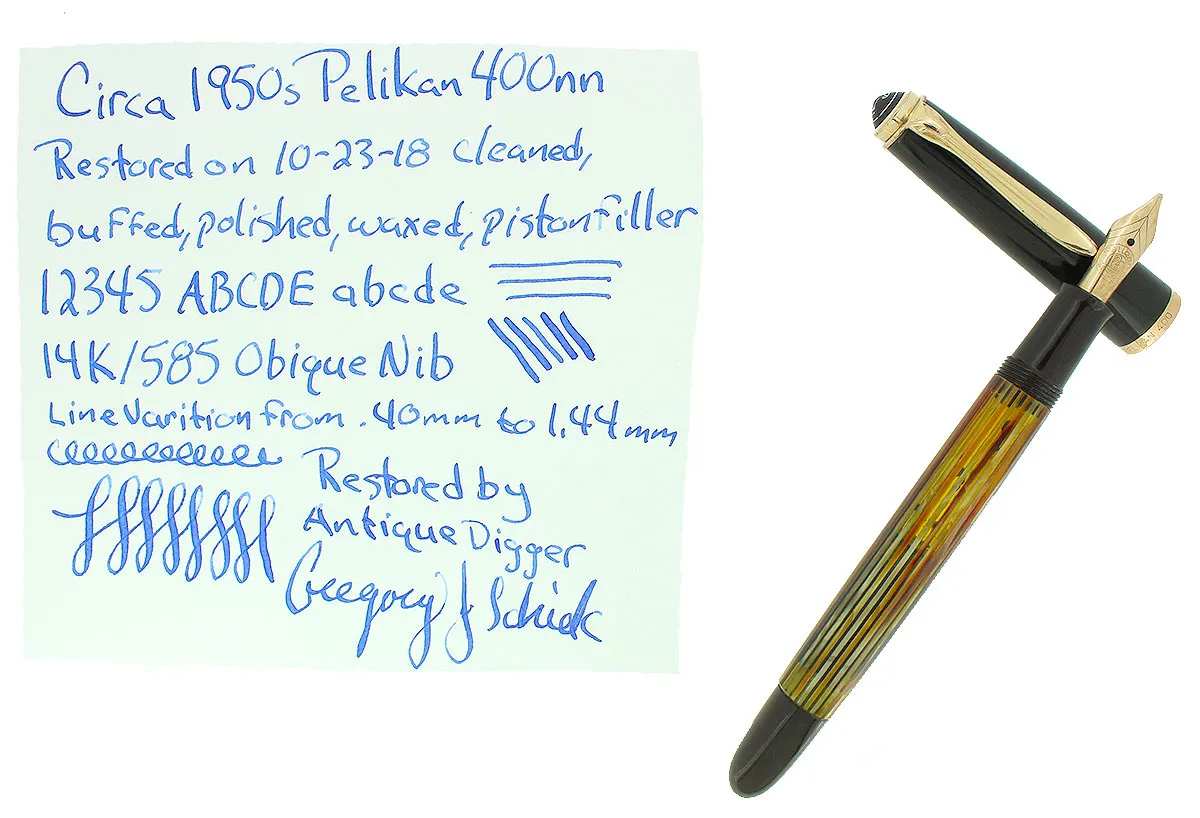 Circa 1950s Pelikan 400nn
Restored on 10-23-18 cleaned,
buffed, polished, waxed, pistonfiller
12345 ABCDE abcde
14K/585 Obique Nib
Line Varition from .40mm to 1.44mm
Restored by
Antique Digger
Gregory J Schiek
N 400